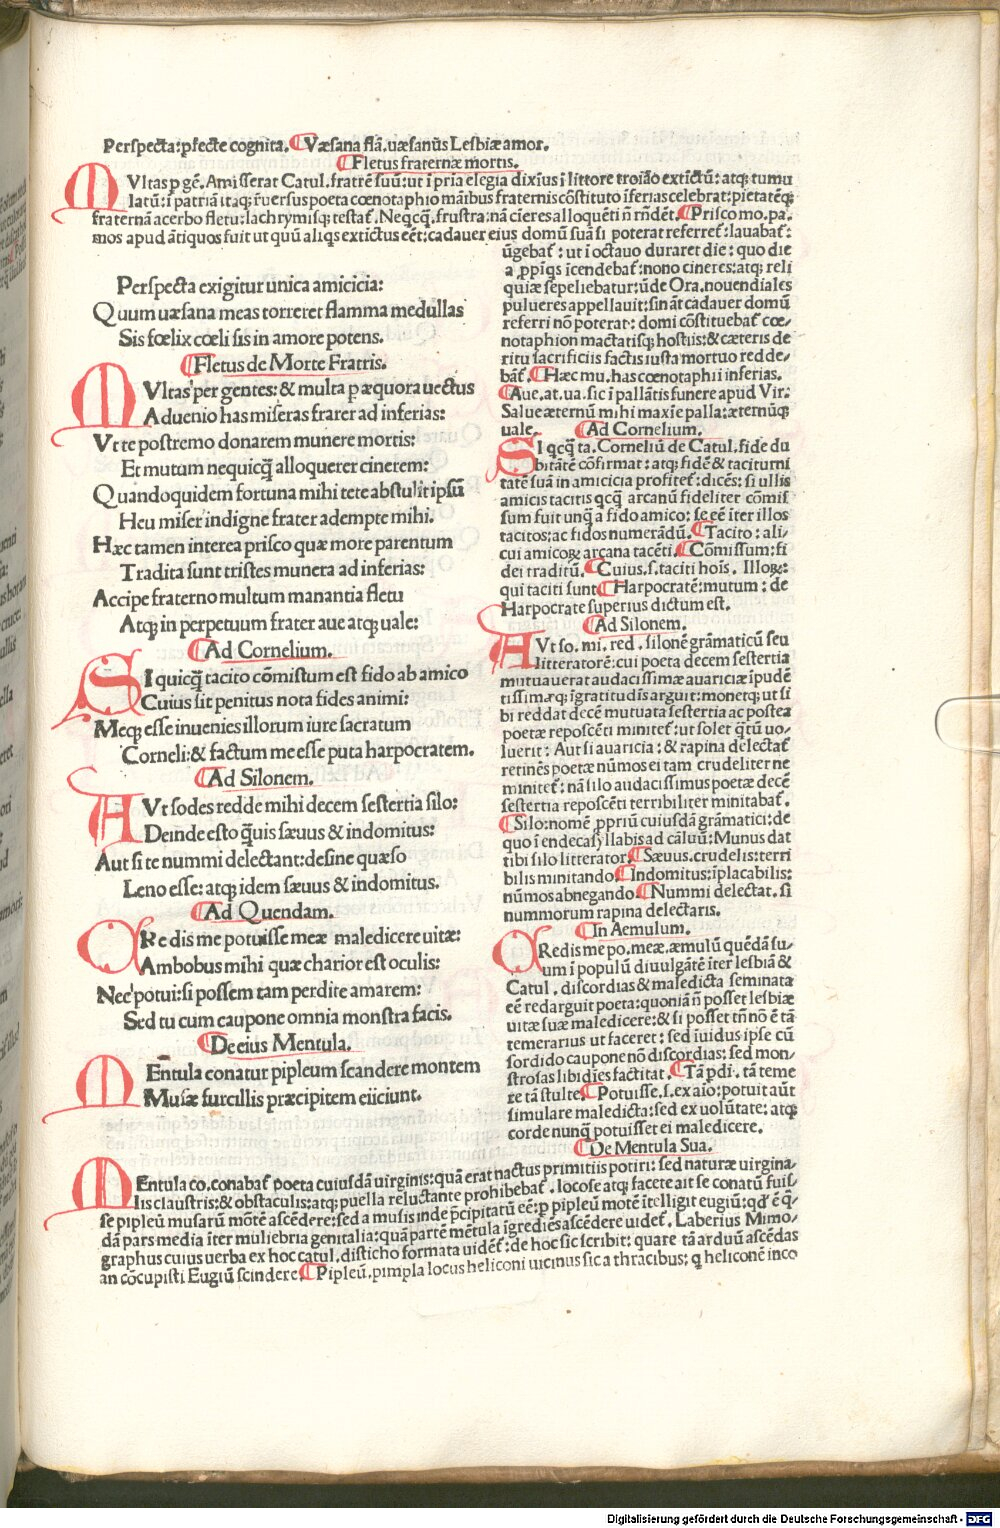 Perspecta: ꝑfecte cognita. Væsana flã. uæsanus Lesbiæ amor.
Fletus fraternæ mortis.
MVltas ꝑ gẽ. Amisserat Catul. fratrẽ suũ: ut ĩ pria elegia diximus ĩ littore troião extictũ: atqꝫ tumu
latũ: ĩ patriã itaqꝫ r̃uersus poeta cœnotaphio mãibus fraternis cõstituto ĩferias celebrat: pietatẽqꝫ
fraternã acerbo fletu: lachrymisqꝫ testat᷑. Neqcq̃. frustra: nã cieres alloquẽti ñ rñdẽt. Prisco mo. pa.
mos apud ãtiquos fuit ut quũ aliqs extictus eẽt: cadauer eius domũ suã si poterat referret᷑: lauabat᷑:
ũgebat᷑: ut ĩ octauo duraret die: quo die
a ꝓpĩqs ĩcendebat᷑: nono cineres: atqꝫ reli
quiæ sepeliebatur: ũde Ora. nouendiales
pulueres appellauit: sin ãt cadauer domũ
referri nõ poterat: domi cõstituebat᷑ cœ-
notaphion mactatisqꝫ hostiis: & cæteris de
ritu sacrificiis factis iusta mortuo redde-
bãt. Hæc mu. has cœnotaphii inferias.
Aue. at. ua. sic ĩ pallãtis funere apud Vir:
Salue æternũ mihi maxie palla: æternũqꝫ
uale.
Perspecta exigitur unica amicicia:
Quum uæsana meas torreret flamma medullas
Sis fœlix cœli sis in amore potens.
Fletus de Morte Fratris.
MVltas per gentes: & multa per æquora uectus
Aduenio has miseras frater ad inferias:
Vt te postremo donarem munere mortis:
Et mutum nequicq̃ alloquerer cinerem:
Quandoquidem fortuna mihi tete abstulit ipsũ
Heu miser indigne frater adempte mihi.
Hæc tamen interea prisco quæ more parentum
Tradita sunt tristes munera ad inferias:
Accipe fraterno multum manantia fletu
Atqꝫ in perpetuum frater aue atqꝫ uale:
Ad Cornelium.
SI quicq̃ tacito cõmistum est fido ab amico
Cuius sit penitus nota fides animi:
Meqꝫ esse inuenies illorum iure sacratum
Corneli: & factum me esse puta harpocratem.
Ad Silonem.
AVt sodes redde mihi decem sestertia silo:
Deinde esto q̃uis sæuus & indomitus:
Aut si te nummi delectant: desine quæso
Leno esse: atqꝫ idem sæuus & indomitus.
Ad Quendam.
CRedis me potuisse meæ maledicere uitæ:
Ambobus mihi quæ charior est oculis:
Nec potui: si possem tam perdite amarem:
Sed tu cum caupone omnia monstra facis.
De eius Mentula.
MEntula conatur pipleum scandere montem
Musæ furcillis præcipitem eiiciunt.
Ad Cornelium.
SI qcq̃ ta. Corneliũ de Catul. fide du
bitãtẽ cõfirmat: atqꝫ fidẽ & taciturni
tatẽ suã in amicicia profitet᷑: dicẽs: si ullis
amicis tacitis qcq̃ arcanũ fideliter cõmis
sum fuit unq̃ a fido amico: se eẽ ĩter illos
tacitos: ac fidos numerãdũ. Tacito: ali-
cui amicoꝝ arcana tacẽti. Cõmissum: fi
dei traditũ. Cuius. s. taciti hoĩs. Illoꝝ:
qui taciti sunt. Harpocratẽ: mutum: de
Harpocrate superius dictum est.
Ad Silonem.
AVt so. mi. red. silonẽ grãmaticũ seu
litteratorẽ: cui poeta decem sestertia
mutua uerat audacissimæ auariciæ ĩpudẽ
tissimæqꝫ: ĩgratitudĩs arguit: monetqꝫ: ut si
bi reddat decẽ mutuata sestertia ac postea
poetæ reposcẽti minitet᷑: ut solet q̃tũ uo-
luerit: Aut si auaricia: & rapina delectat᷑
retinẽs poetæ nũmos ei tam crudeliter ne
minitet᷑: nã silo audacissimus poetæ decẽ
sestertia reposcẽti terribiliter minitabat᷑.
Silo: nomẽ ꝓpriũ cuiusdã grãmatici: de
quo ĩ endecasyllabis ad caluũ: Munus dat
tibi silo litterator. Sæuus. crudelis: terri
bilis minitando. Indomitus: ĩplacabilis:
nũmos abnegando. Nummi delectat. si
nummorum rapina delectaris.
In Aemulum.
CRedis me po. meæ. æmulũ quẽdã su-
um ĩ populũ diuulgãtẽ ĩter lesbiã &
Catul. discordias & maledicta seminata
eẽ redarguit poeta: quoniã ñ posset lesbiæ
uitæ suæ maledicere: & si posset tñ nõ ẽ tã
temerarius ut faceret: sed ĩuidus ipse cũ
sordido caupone nõ discordias: sed mon-
strosas libidĩes factitat. Tã ꝑdi. tã teme
re tã stulte. Potuisse. s. ex aĩo: potuit aũt
simulare maledicta: sed ex uolũtate: atqꝫ
corde nunq̃ potuisset ei maledicere.
De Mentula Sua.
MEntula co. conabat᷑ poeta cuiusdã uirginis: quã erat nactus primitiis potiri: sed naturæ uirgina-
lis claustris: & obstaculis: atqꝫ puella reluctante prohibebat᷑. Iocose atqꝫ facete ait se conatũ fuis-
se pipleũ musarũ mõtẽ ascẽdere: sed a musis inde p̃cipitatũ eẽ: ꝑ pipleũ motẽ ĩtelligit eugiũ: qd̕ ẽ q̃-
dã pars media ĩter muliebria genitalia: quã partẽ mẽtula ĩgrediẽs ascẽdere uidet᷑. Laberius Mimo-
graphus cuius uerba ex hoc catul. disticho formata uidẽt᷑: de hoc sic scribit: quare tã arduũ ascẽdas
an cõcupisti Eugiũ scindere. Pipleũ. pimpla locus heliconi uicinus sic a thracibus: q heliconẽ inco
Digitalisierung gefördert durch die Deutsche Forschungsgemeinschaft - DFG